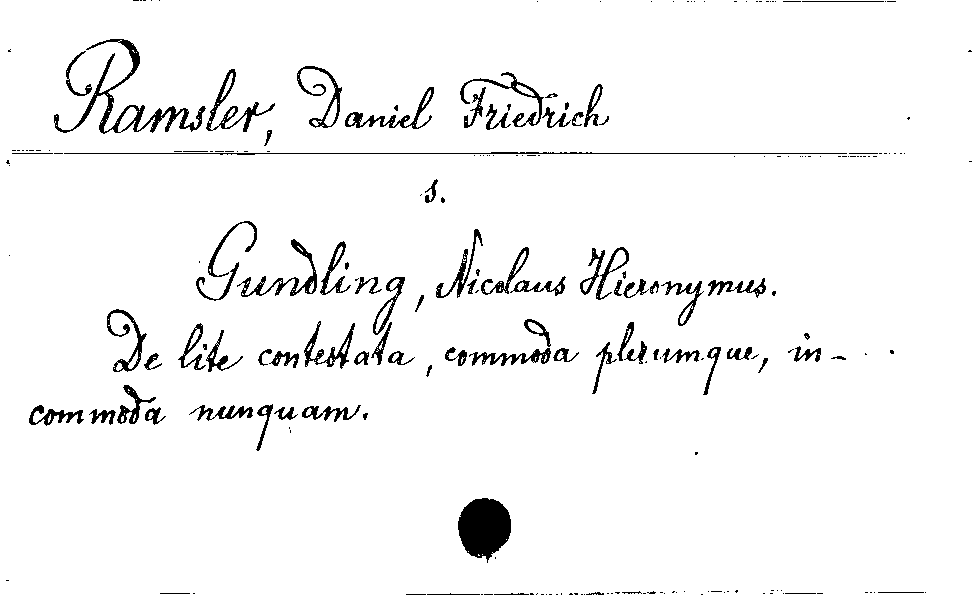 Ramsler, Daniel Friedrich
s.
Gundling, Nicolaus Hieronymus.
De lite contestata, commoda plerumque, in-
commoda nunquam.